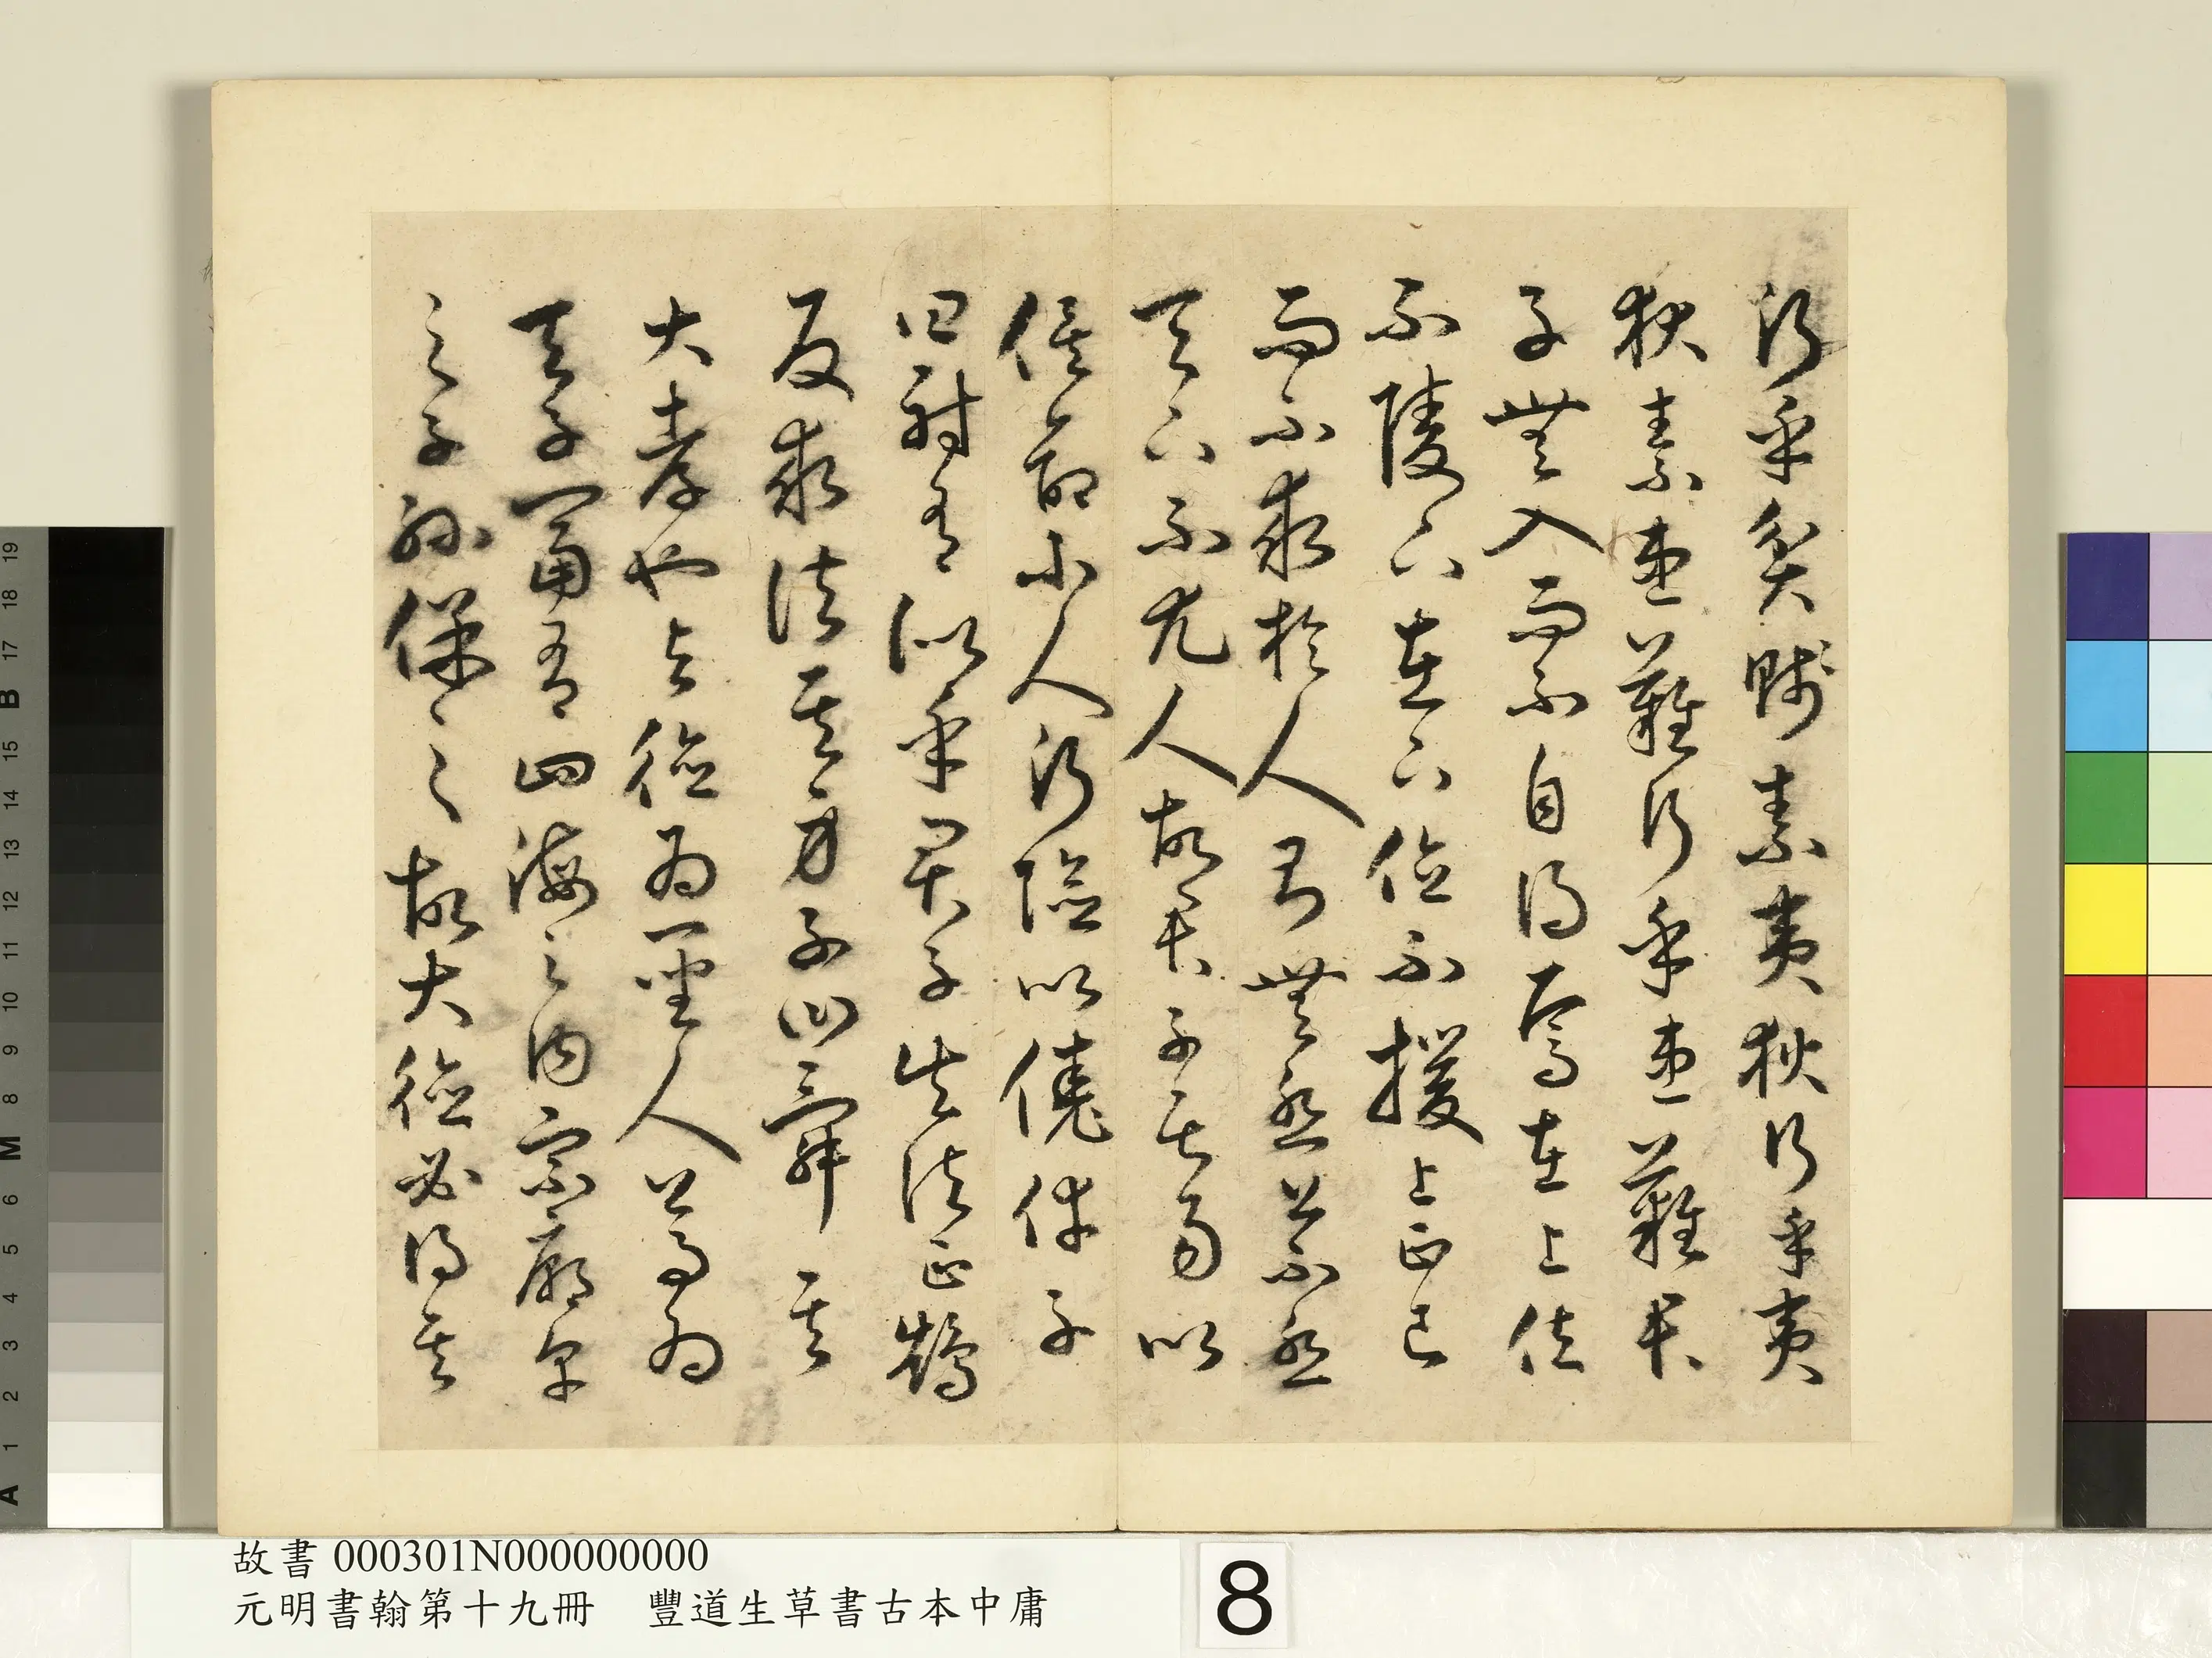 行乎貧賤素夷狄行乎夷
狄素患難行乎患難君
子無入而不自得焉在上位
不陵下在下位不援上正己
而不求於人則無怨上不怨
天下不尤人故君子居易以
俟命小人行險以徼倖子
曰射有似乎君子失諸正鵠
反求諸其身子曰舜其
大孝也與德為聖人尊為
天子富有四海之內宗廟享
之子孫保之故大德必得其
故書 000301N000000000
元明書翰第十九冊 豐道生草書古本中庸
8
A 1 2 3 4 5 6 M 8 9 10 11 12 13 14 15 B 17 18 19